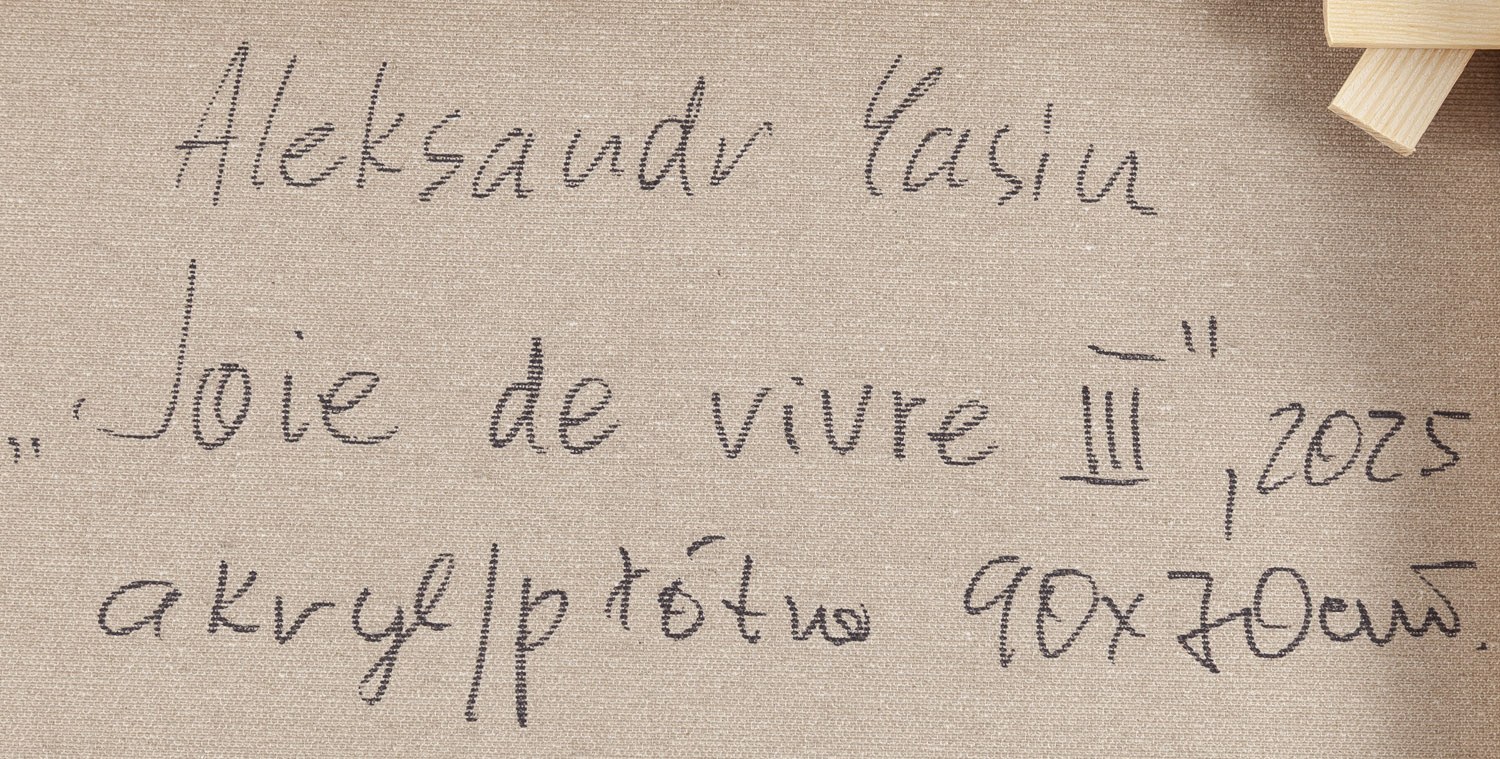 Aleksandr Yasin
„Joie de vivre III", 2025
akryl/płótno 90x70cm.